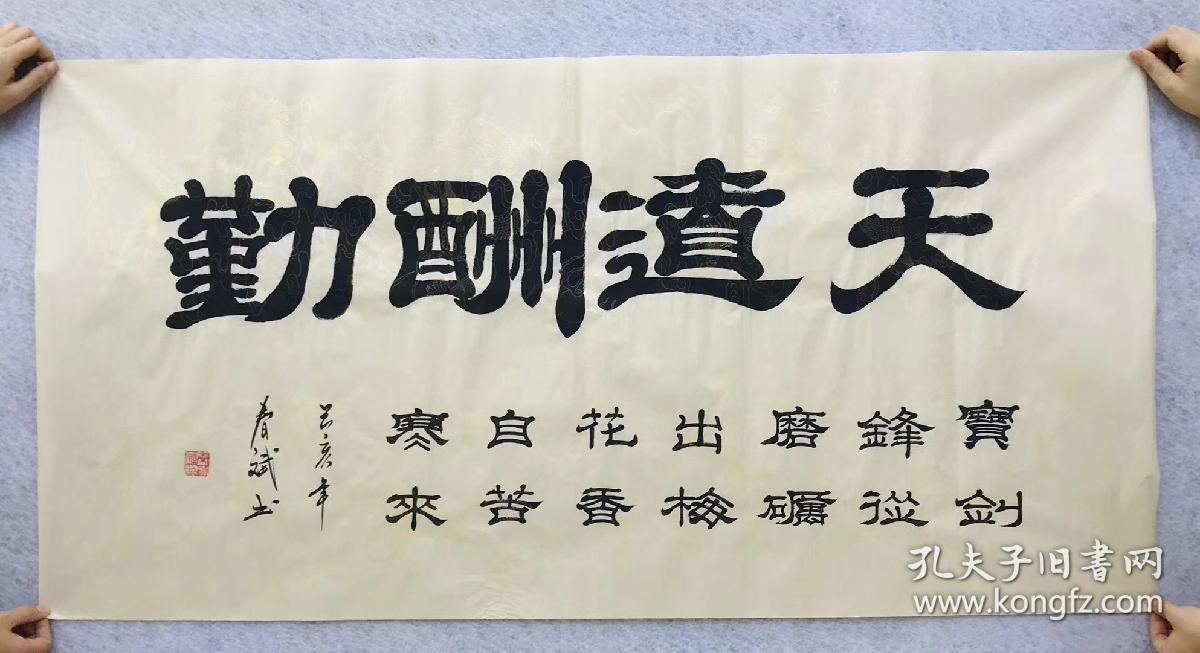 天道酬勤
寶劍
鋒從
磨礪
出梅
花香
自苦
寒來
春斌书
孔夫子旧书网
www.kongfz.com